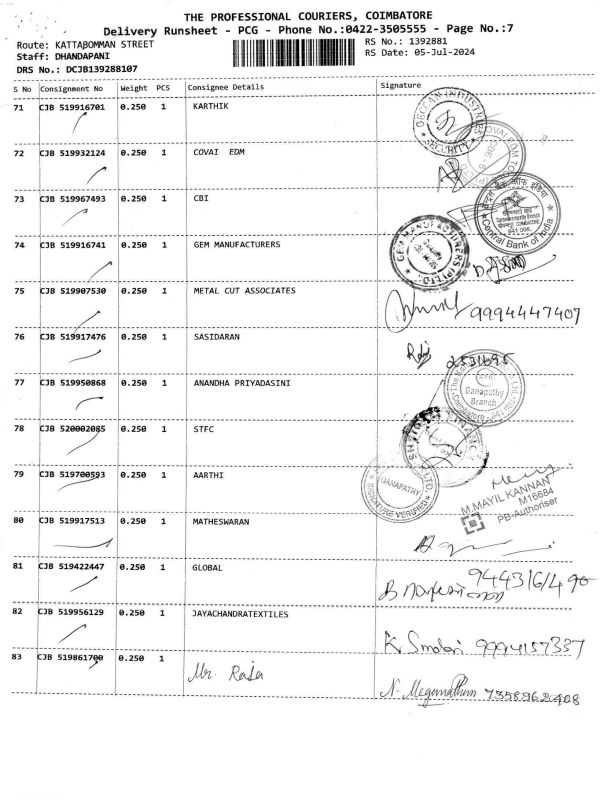 THE PROFESSIONAL COURIERS, COIMBATORE
Delivery Runsheet - PCG - Phone No.:0422-3505555 - Page No.:7
Route: KATTABOMMAN STREET
RS No.: 1392881
Staff: DHANDAPANI
RS Date: 05-Jul-2024
DRS No.: DCJB139288107
S No Consignment No Weight PCS Consignee Details Signature
71 CJB 519916701 0.250 1 KARTHIK
SECURITY
72 CJB 519932124 0.250 1 COVAI EDM
73 CJB 519967493 0.250 1 CBI
Central Bank of India
74 CJB 519916741 0.250 1 GEM MANUFACTURERS
GEM MANUFACTURERS (P) LTD.
75 CJB 519907530 0.250 1 METAL CUT ASSOCIATES
9994447407
76 CJB 519917476 0.250 1 SASIDARAN
77 CJB 519950868 0.250 1 ANANDHA PRIYADASINI
Ganapathy
Branch
78 CJB 520002085 0.250 1 STFC
79 CJB 519700593 0.250 1 AARTHI
GANAPATHY
SIGNATURE VERIFIED
M.MAYIL KANNAN
M16684
PB-Authoriser
80 CJB 519917513 0.250 1 MATHESWARAN
81 CJB 519422447 0.250 1 GLOBAL
82 CJB 519956129 0.250 1 JAYACHANDRATEXTILES
9994157337
83 CJB 519861700 0.250 1 Mr. Raja